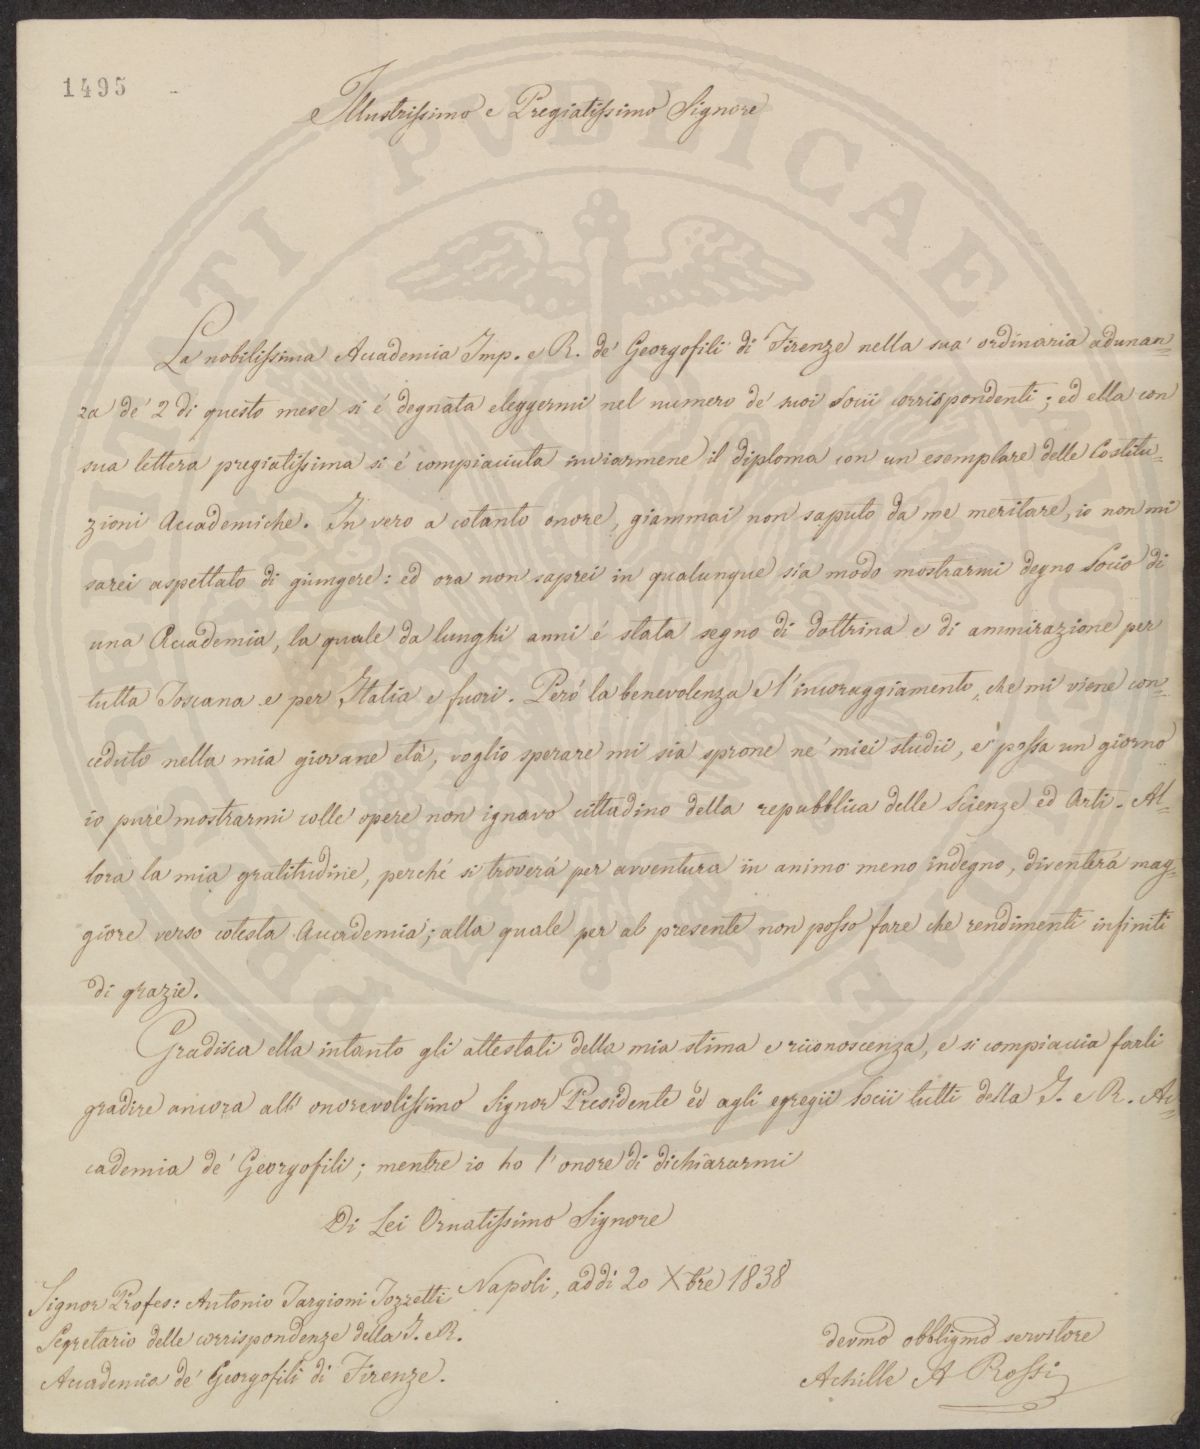 1495
Illustrissimo e Pregiatissimo Signore
La nobilissima Accademia Imp. e R. de' Georgofili di Firenze nella sua ordinaria adunan=
za de' 2 di questo mese si é degnata eleggermi nel numero de' suoi Socii corrispondenti; ed ella con
sua lettera pregiatissima si é compiaciuta inviarmene il diploma con un esemplare delle Costitu=
zioni Accademiche. In vero a cotanto onore, giammai non saputo da me meritare, io non mi
sarei aspettato di giungere: ed ora non saprei in qualunque sia modo mostrarmi degno Socio di
una Accademia, la quale da lunghi anni é stata segno di dottrina e di ammirazione per
tutta Toscana e per Italia e fuori. Però la benevolenza e l'incoraggiamento, che mi viene con=
ceduto nella mia giovane età, voglio sperare mi sia sprone ne' miei studii, e possa un giorno
io pure mostrarmi colle opere non ignavo cittadino della repubblica delle Scienze ed Arti. Al=
lora la mia gratitudine, perché si troverá per avventura in animo meno indegno, diventerá mag=
giore verso cotesta Accademia; alla quale per al presente non posso fare che rendimenti infiniti
di grazie.
Gradisca ella intanto gli attestati della mia stima e riconoscenza, e si compiaccia farli
gradire ancora all' onorevolissimo Signor Presidente ed agli egregii Socii tutti della I. e R. Ac=
cademia de' Georgofili; mentre io ho l'onore di dichiararmi
Di Lei Ornatissimo Signore
Napoli, addi 20 Xbre 1838
Signor Profes: Antonio Targioni Tozzetti
Segretario delle corrispondenze della I. e R.
Accademia de' Georgofili di Firenze.
devmo obbligmo servitore
Achille A Rossi
PROSPERITATI PVBLICAE